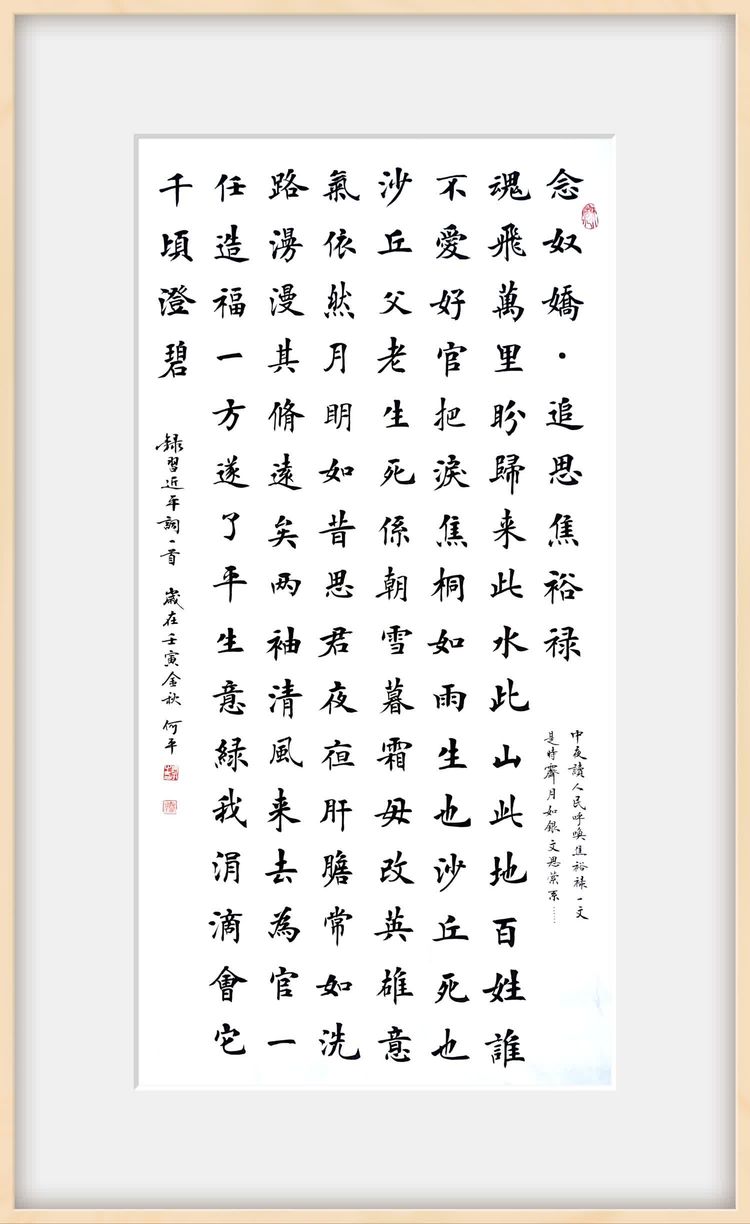 念奴嬌·追思焦裕禄
中夜讀人民呼喚焦裕禄一文
是時霽月如銀文思縈系……
魂飛萬里盼歸来此水此山此地百姓誰
不愛好官把淚焦桐如雨生也沙丘死也
沙丘父老生死係朝雪暮霜毋改英雄意
氣依然月明如昔思君夜亱肝膽常如洗
路澷漫其脩遠矣两袖清風来去為官一
任造福一方遂了平生意緑我涓滴會它
千頃澄碧
録習近平詞一首 歲在壬寅金秋 何平